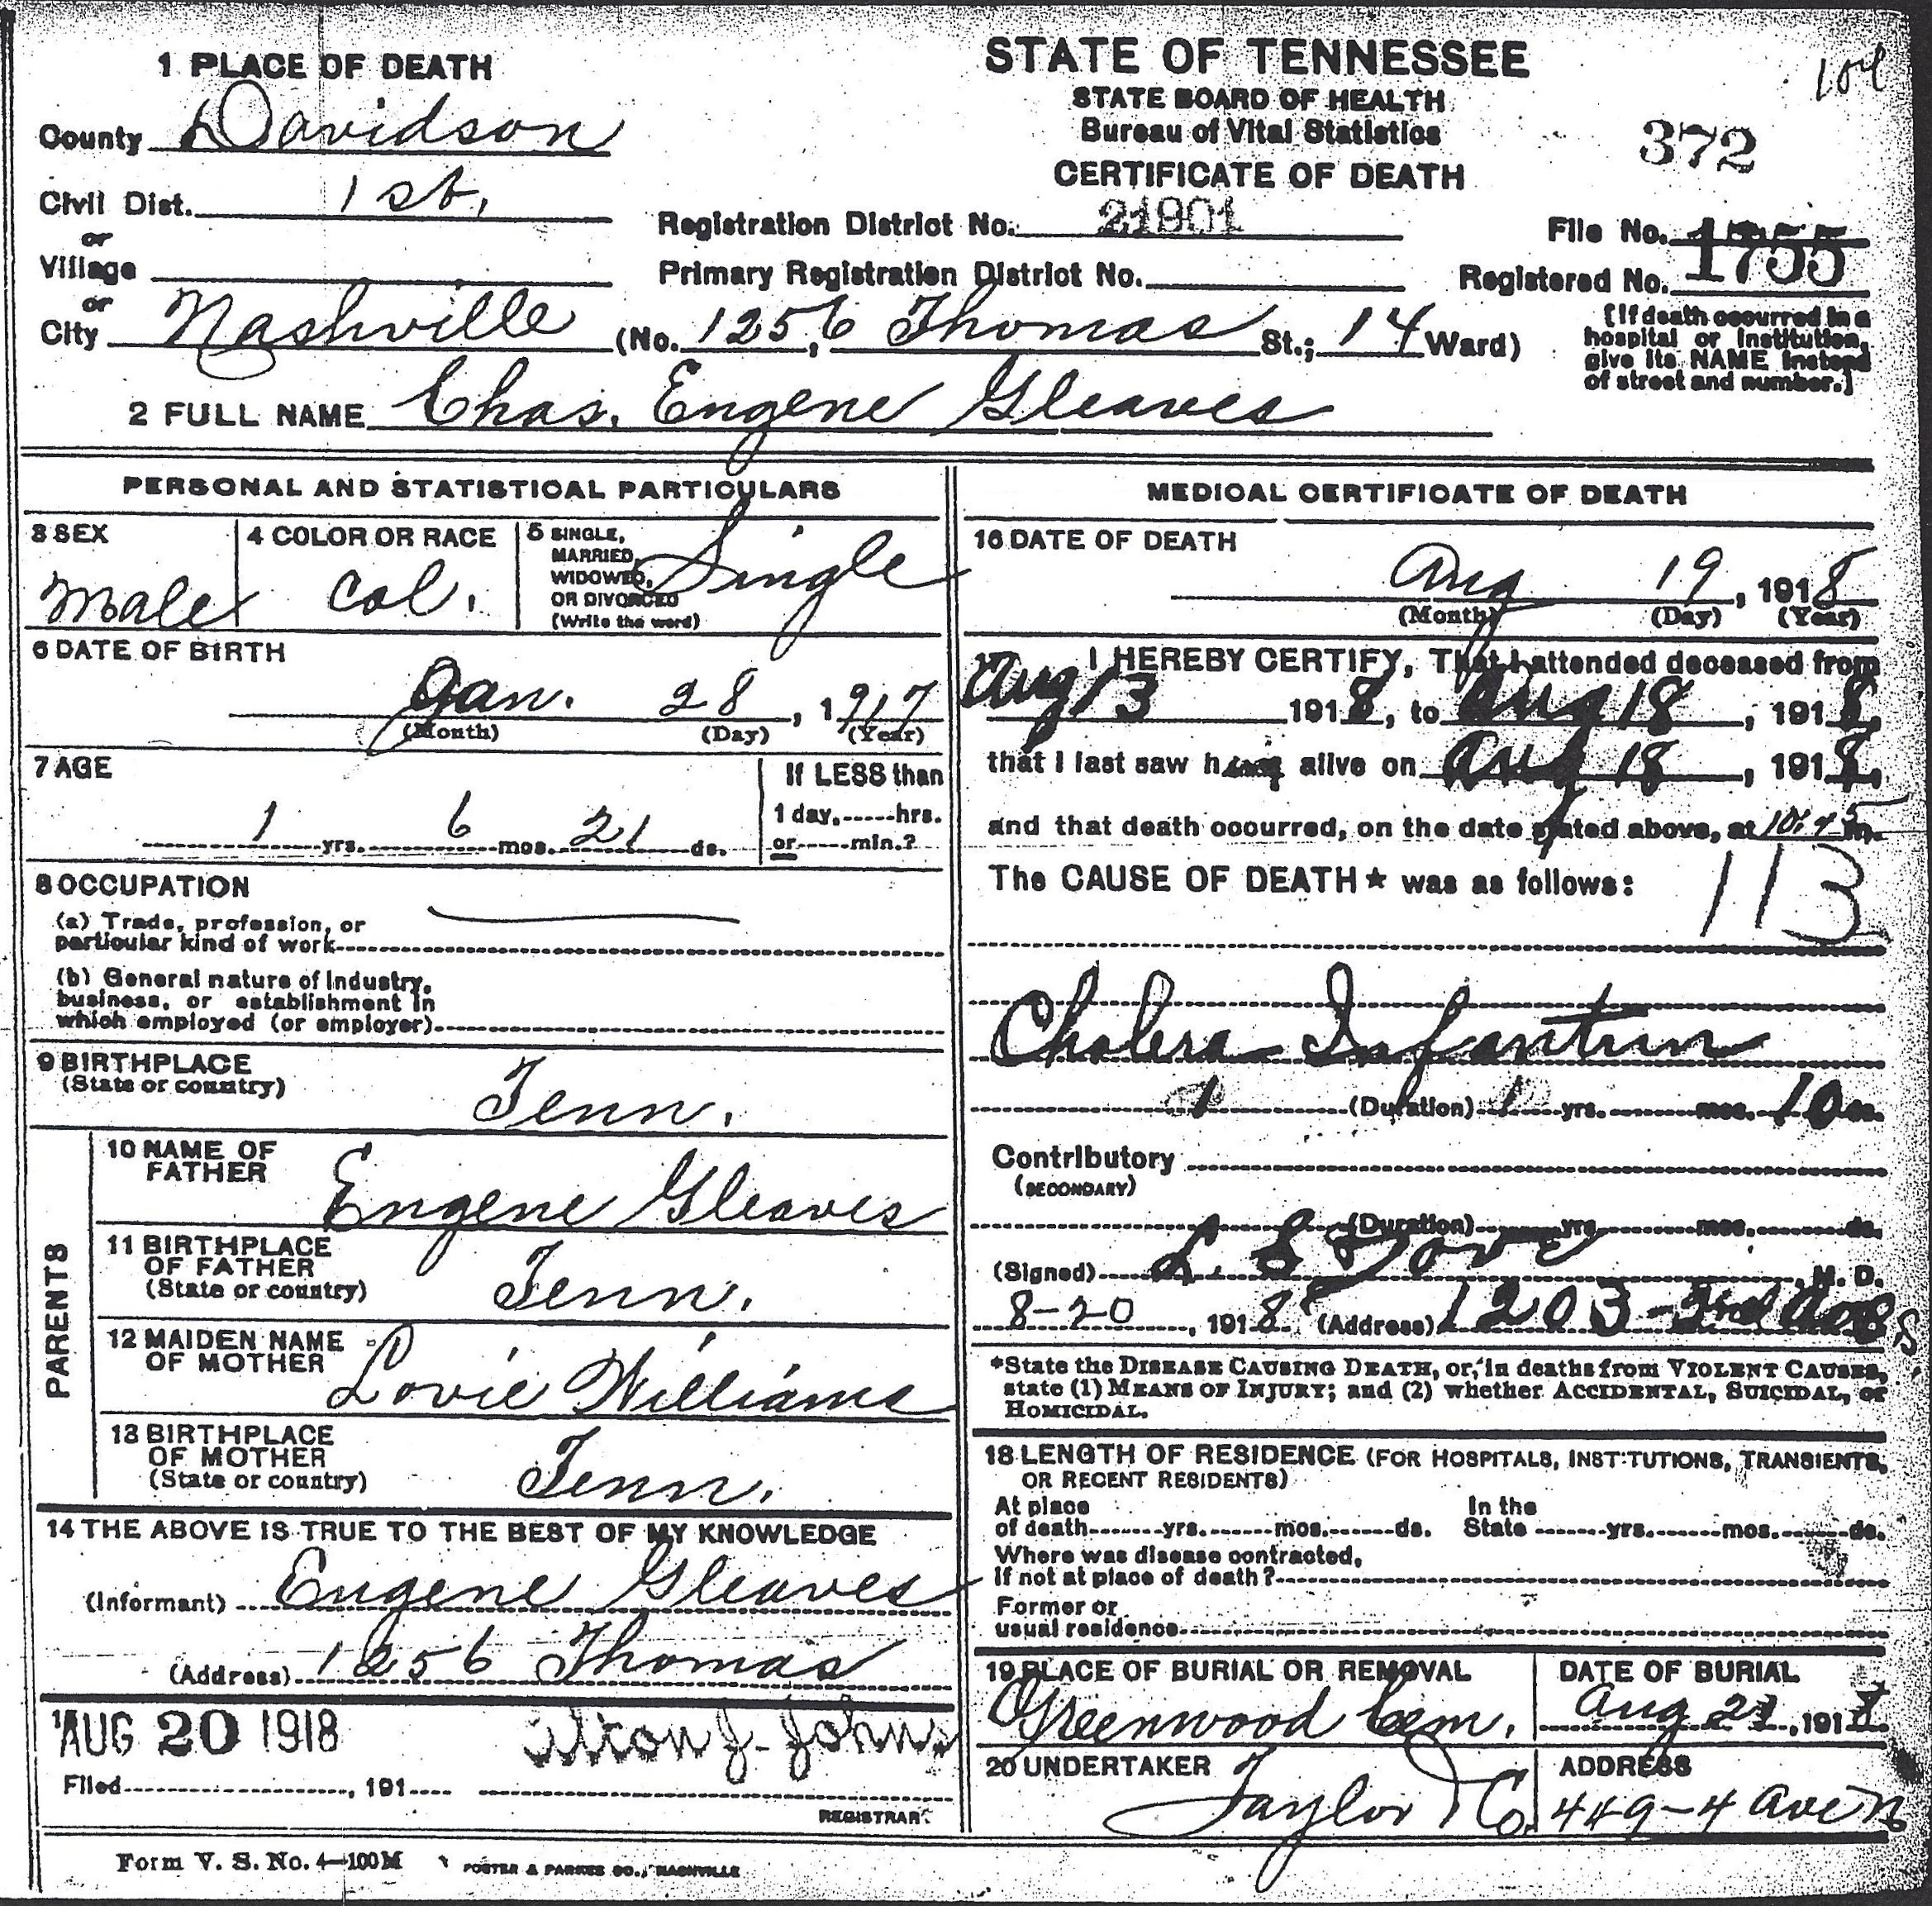 1 PLACE OF DEATH
County Davidson
Civil Dist. 1st.
or
Village
or
City Nashville (No. 1256, Thomas St.; 14 Ward)
STATE OF TENNESSEE
STATE BOARD OF HEALTH
Bureau of Vital Statistics
CERTIFICATE OF DEATH
372
Registration District No. 21901
File No.
Primary Registration District No.
Registered No. 1755
[If death occurred in a
hospital or institution,
give its NAME instead
of street and number.]
2 FULL NAME Chas. Eugene Gleaves
PERSONAL AND STATISTICAL PARTICULARS
3 SEX
Male
4 COLOR OR RACE
Col.
5 SINGLE,
MARRIED,
WIDOWED,
OR DIVORCED
(Write the word)
Single
6 DATE OF BIRTH
Jan. 28, 1917
(Month) (Day) (Year)
7 AGE
1 yrs. 6 mos. 21 ds.
If LESS than
1 day, hrs.
or min.?
8 OCCUPATION
(a) Trade, profession, or
particular kind of work
(b) General nature of Industry,
business, or establishment in
which employed (or employer)
9 BIRTHPLACE
(State or country)
Tenn.
PARENTS
10 NAME OF
FATHER
Eugene Gleaves
11 BIRTHPLACE
OF FATHER
(State or country)
Tenn.
12 MAIDEN NAME
OF MOTHER
Lovie Williams
13 BIRTHPLACE
OF MOTHER
(State or country)
Tenn.
14 THE ABOVE IS TRUE TO THE BEST OF MY KNOWLEDGE
(Informant) Eugene Gleaves
(Address) 1256 Thomas
AUG 20 1918
J. Johns
Filed , 191
REGISTRAR.
MEDICAL CERTIFICATE OF DEATH
16 DATE OF DEATH
Aug 19, 1918
(Month) (Day) (Year)
I HEREBY CERTIFY, That I attended deceased from
Aug 13 1918, to Aug 18, 1918,
that I last saw him alive on Aug 18, 1918,
and that death occurred, on the date stated above, at 10:45 m.
The CAUSE OF DEATH* was as follows: 113
Cholera Infantum
(Duration) yrs. mos. 10 ds.
Contributory
(SECONDARY)
(Duration) yrs. mos. ds.
(Signed) L. E. , M. D.
8-20, 1918. (Address) 1203-3rd Ave S.
*State the DISEASE CAUSING DEATH, or, in deaths from VIOLENT CAUSES,
state (1) MEANS OF INJURY; and (2) whether ACCIDENTAL, SUICIDAL, or
HOMICIDAL.
18 LENGTH OF RESIDENCE (FOR HOSPITALS, INSTITUTIONS, TRANSIENTS,
OR RECENT RESIDENTS)
At place
of death yrs. mos. ds.
In the
State yrs. mos. ds.
Where was disease contracted,
If not at place of death?
Former or
usual residence
19 PLACE OF BURIAL OR REMOVAL
Greenwood Cem.
DATE OF BURIAL
Aug 21, 1918
20 UNDERTAKER
Taylor & Co.
ADDRESS
449-4 Ave N
Form V. S. No. 4-100M
FOSTER & PARKES CO., NASHVILLE